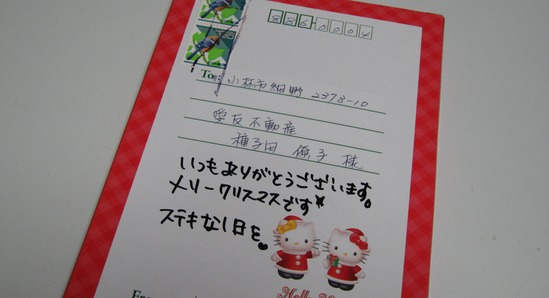 886-0004
To:
小林市細野 2373-10
愛友不動産
種子田 様
いつもありがとうございます。
メリークリスマスです
ステキな1日を
Hello